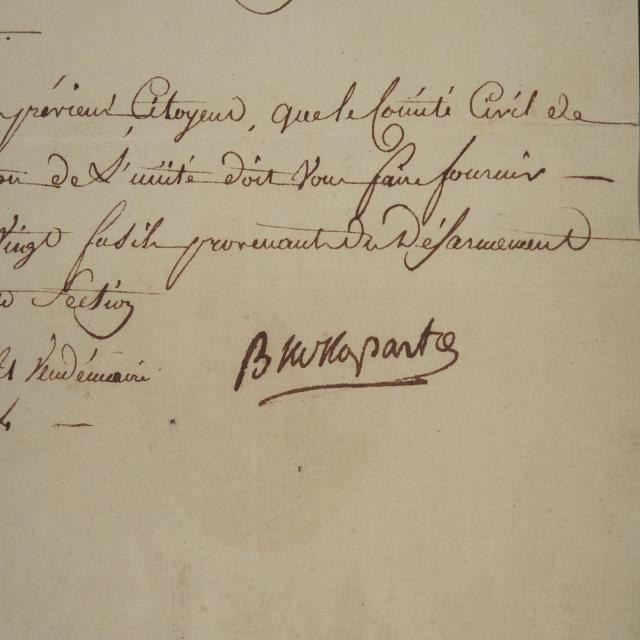 prévieus Citoyens, que le Comité Civil de
on de L'unité doit Vous faire fournir —
Vingt fusils provenant du Désarmement
Section
Vendémiaire
4 —
Buonaparte